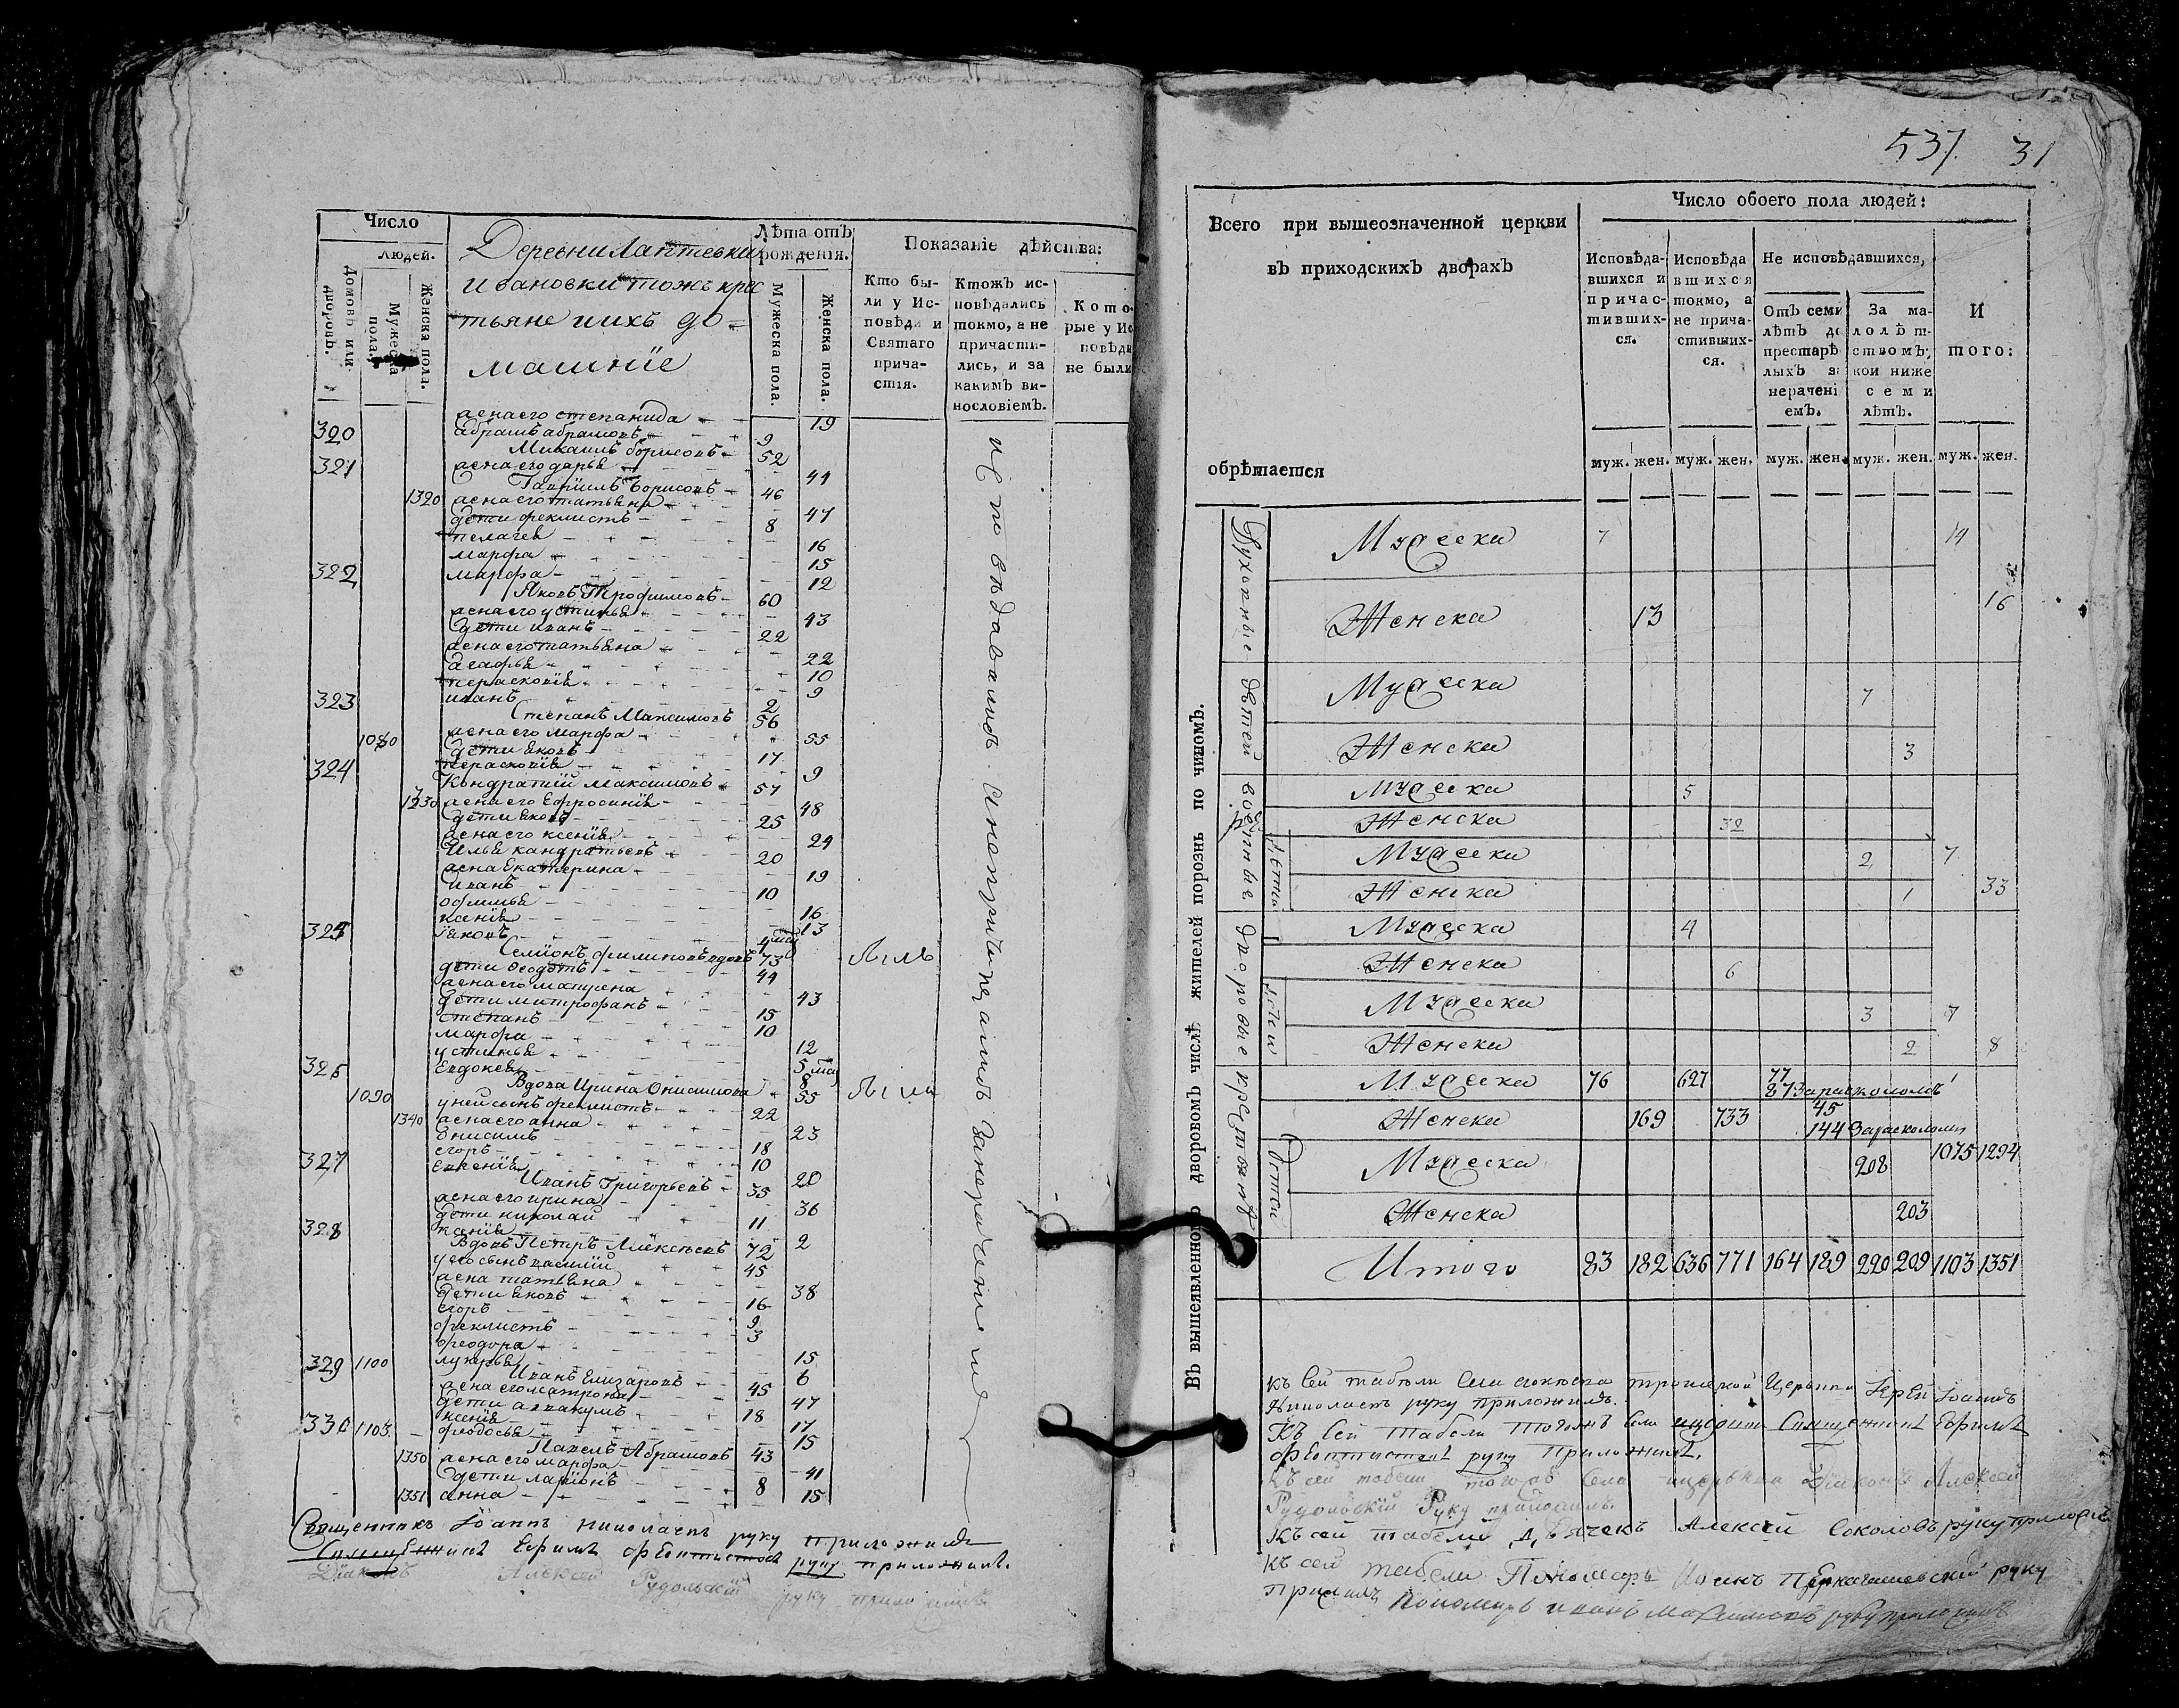 Число
людей.
Домовъ или дворовъ.
Мужеска пола.
Женска пола.
Деревни Лаптевки
Ивановки тожъ крес
тьяне и ихъ до=
машніе
Лѣта отъ рожденія.
Мужеска пола.
Женска пола.
Показаніе дѣйства:
Кто бы-
ли у Ис-
повѣди и
Святаго
прича-
стія.
Ктожъ ис-
повѣдались
токмо, а не
причасти-
лись, и за
какимъ ви-
нословіемъ.
Кото-
рые у Ис
повѣди
не были
жена его степанида 19
320 абрамъ абрамовъ 9
Михаилъ борисовъ 52
321 жена его дарья 44
Гаврилъ борисовъ 46
1320 жена его татьяна 47
дети феклистъ 8
пелагея 16
марфа 15
322 марфа 12
Яковъ Трофимовъ 60
жена его устинья 43
дети иванъ 22
жена его татьяна 22
агафья 10
перасковія 9
323 иванъ 2
Степанъ Максимовъ 56
1080 жена его марфа 55
дети яковъ 17
324 перасковія 9
Кондратій максимовъ 57
1330 жена его Ефросинія 48
дети яковъ 25
жена его ксенія 24
Илья кандратьевъ 20
жена Екатерина 19
иванъ 10
офимья 16
ксенія 13
325 яковъ
Семіонъ филиповъ вдовъ 73 былъ
дети Феодотъ 44
жена его матрена 43
дети митрофанъ 15
степанъ 10
марфа 12
устинья 5
326 Евдокея 8
Вдова Ирина Онисимова 55 была
1090 у ней сынъ феклистъ 22
1340 жена его анна 23
Онисимъ 18
егоръ 10
327 Евгенія 20
Иванъ Григорьевъ 35
жена его ирина 36
дети николай 11
328 ксенія 2
Вдовъ Петръ Алексеевъ 72
у его сынъ василій 45
жена татьяна 38
дети яковъ 16
егоръ 9
феклистъ 3
феодора 15
329 1100 лукерья 6
Иванъ Елизаровъ 45
жена его матрона 47
дети аввакумъ 18
ксенія 17
330 1103 феодосья 15
Павелъ Абрамовъ 43
1350 жена его марфа 41
дети ларіонъ 8
1351 анна 15
исповѣдавались а не причащались за нерачениемъ
Священникъ Іоаннъ Николаевъ руку приложилъ
Священникъ Ефимъ Феоктистовъ руку приложилъ.
Діаконъ Алексей Рудольскій руку приложилъ
537. 31
Всего при вышеозначенной церкви
въ приходскихъ дворахъ
обрѣтается
Число обоего пола людей:
Исповѣда-
вшихся и
причас-
тивших-
ся.
Исповѣда
вшихся
токмо, а
не прича-
стивших-
ся.
Не исповѣдавшихся,
Отъ семи
лѣтъ до
престарѣ
лыхъ за
нерачені
емъ.
За ма-
лолѣт-
ствомъ,
кои ниже
семи
лѣтъ.
И
того:
муж. жен. муж. жен. муж. жен. муж. жен. муж. жен.
Въ вышеявленномъ дворовомъ числѣ жителей порознь по чиномъ.
Духовные
Мужеска 7 14
Женска 13 16
детей
Мужеска 7
Женска 3
военные
Мужеска 5
Женска 32
детей
Мужеска 2 7
Женска 1 33
дворовые
Мужеска 4
Женска 6
дети
Мужеска 3 7
Женска 2 8
крестьянъ
Мужеска 76 627 77 87 За расколомъ
Женска 169 733 45 144 За расколомъ
Детей
Мужеска 208 1075 1294
Женска 203
Итого 83 182 636 771 164 189 220 209 1103 1351
Къ сей табели троицкой Церькви Іерей Іоаннъ
Николаевъ руку приложилъ.
Къ сей табели тогожъ села Священникъ Ефимъ
Феоктистовъ руку приложилъ.
Къ сей табели тогожъ села Діаконъ Алексей
Рудольскій Руку приложилъ.
Къ сей табели дьячекъ Алексей Соколовъ руку приложилъ
Къ сей табели Пономарь руку
Пономарь иванъ руку приложилъ